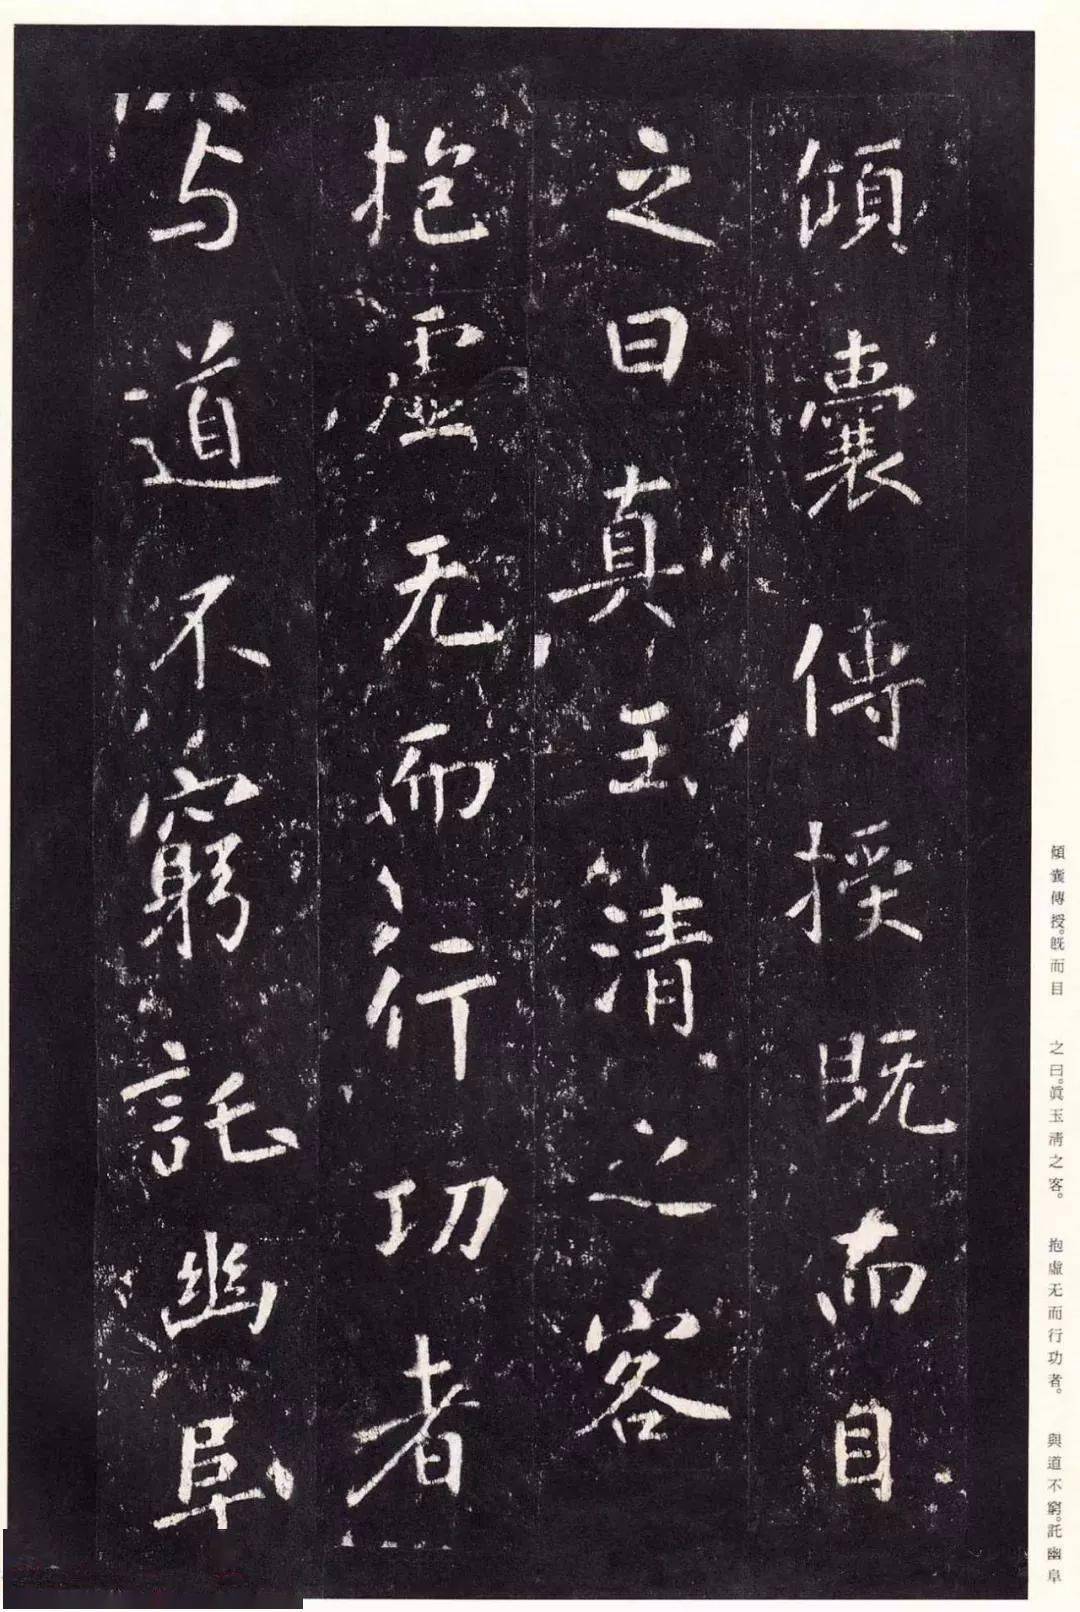 傾囊傳授既而目
之曰真玉清之客
抱虛无而行功者
与道不窮託幽阜
傾囊傳授。既而目 之曰。眞玉淸之客。 抱虛无而行功者。 與道不窮。託幽阜